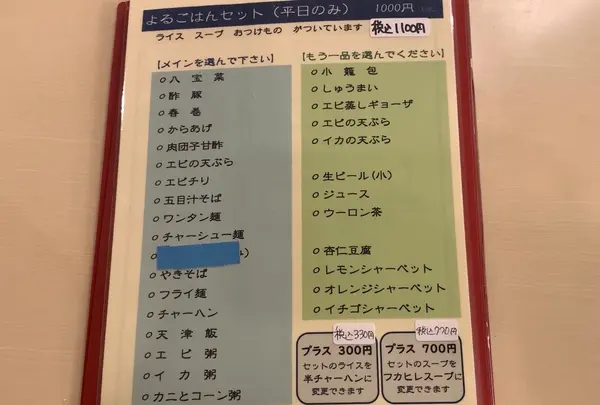 よるごはんセット（平日のみ） 1000円
ライス スープ おつけもの がついています 税込1100円
【メインを選んで下さい】
○八宝菜
○酢豚
○春巻
○からあげ
○肉団子甘酢
○エビの天ぷら
○エビチリ
○五目汁そば
○ワンタン麺
○チャーシュー麺
○やきそば
○フライ麺
○チャーハン
○天津飯
○エビ粥
○イカ粥
○カニとコーン粥
【もう一品を選んでください】
○小籠包
○しゅうまい
○エビ蒸しギョーザ
○エビの天ぷら
○イカの天ぷら
○生ビール(小)
○ジュース
○ウーロン茶
○杏仁豆腐
○レモンシャーベット
○オレンジシャーベット
○イチゴシャーベット
税込330円
プラス 300円
セットのライスを
半チャーハンに
変更できます
税込770円
プラス 700円
セットのスープを
フカヒレスープに
変更できます